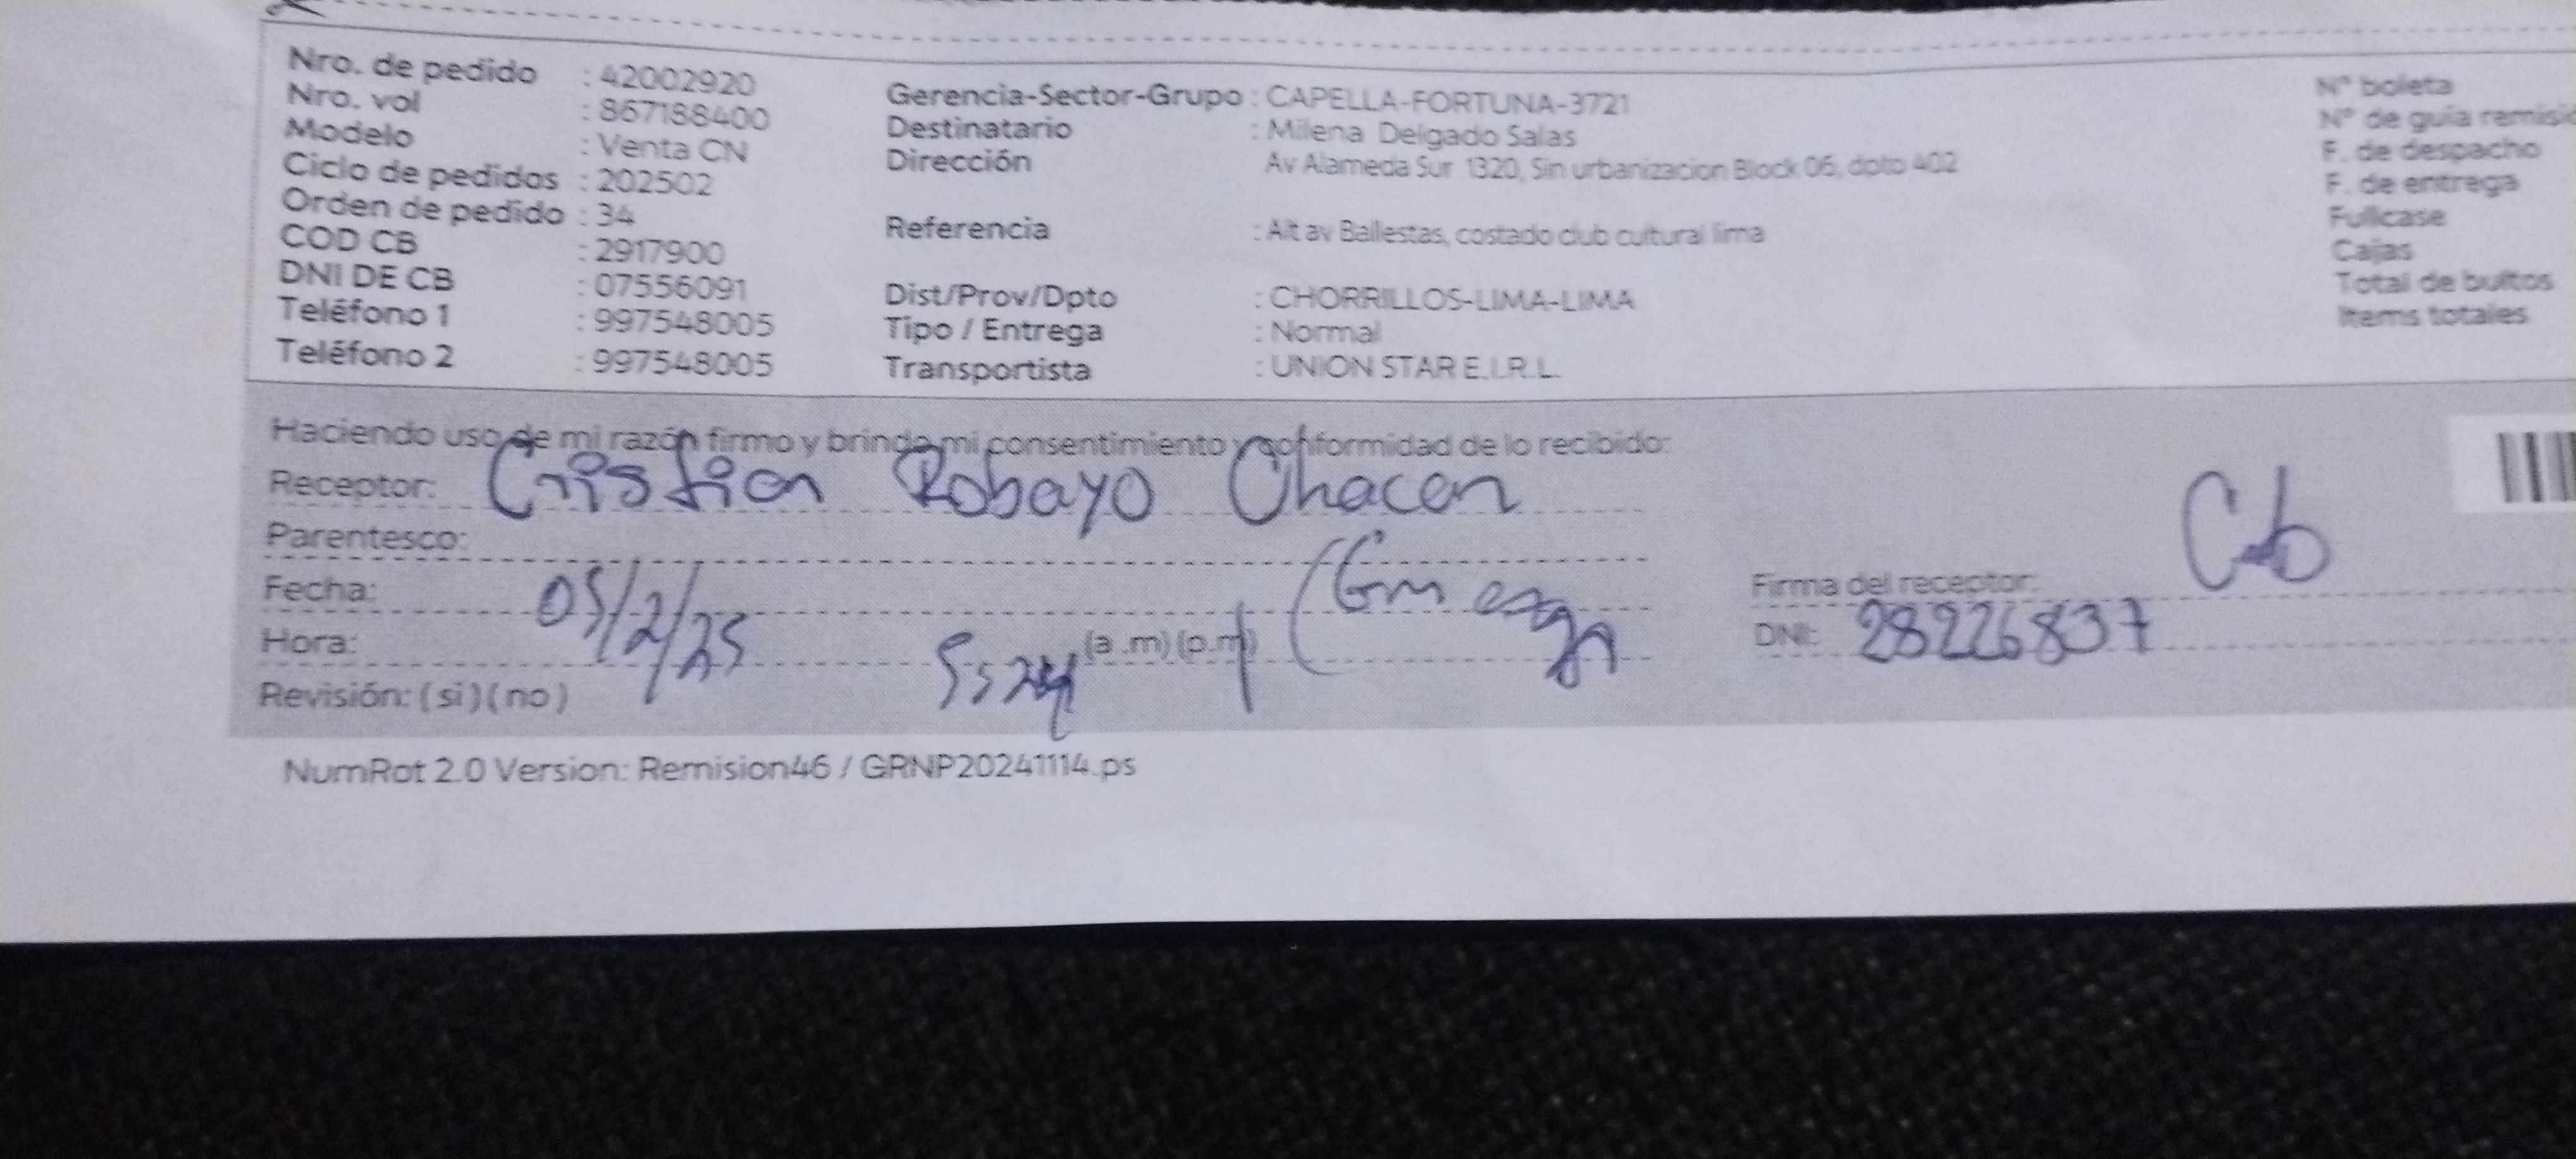 Nro. de pedido : 42002920
Nro. vol : 867188400
Modelo : Venta CN
Ciclo de pedidos : 202502
Orden de pedido : 34
COD CB : 2917900
DNI DE CB : 07556091
Teléfono 1 : 997548005
Teléfono 2 : 997548005
Gerencia-Sector-Grupo : CAPELLA-FORTUNA-3721
Destinatario : Milena Delgado Salas
Dirección Av Alameda Sur 1320, Sin urbanizacion Block 06, dpto 402
Referencia : Alt av Ballestas, costado club cultural lima
Dist/Prov/Dpto : CHORRILLOS-LIMA-LIMA
Tipo / Entrega : Normal
Transportista : UNION STAR E.I.R.L.
N° boleta
N° de guía remisi
F. de despacho
F. de entrega
Fullcase
Cajas
Total de bultos
Items totales
Haciendo uso de mi razón firmo y brindo mi consentimiento y conformidad de lo recibido:
Receptor: Cristian Robayo Chacon
Parentesco:
Fecha: 05/2/25
Hora: (a .m) (p.m)
Revisión: ( si ) ( no )
Firma del receptor:
DNI: 28226837
NumRot 2.0 Version: Remision46 / GRNP20241114.ps